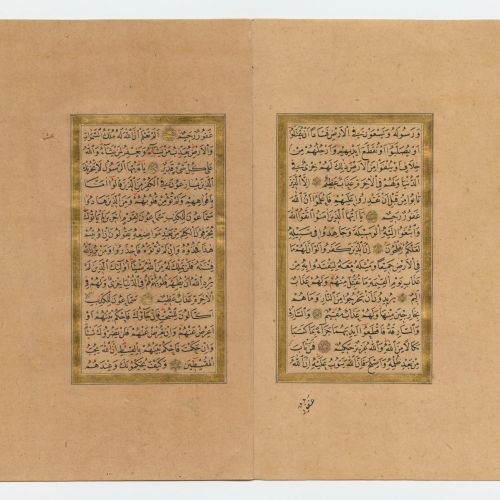 ورسوله ويسعون في الارض فسادا ان يقتلوا
او يصلبوا او تقطع ايديهم وارجلهم من
خلاف او ينفوا من الارض ذلك لهم خزي في
الدنيا ولهم في الاخرة عذاب عظيم الا الذين
تابوا من قبل ان تقدروا عليهم فاعلموا ان الله
غفور رحيم يا ايها الذين امنوا اتقوا الله
وابتغوا اليه الوسيلة وجاهدوا في سبيله
لعلكم تفلحون ان الذين كفروا لو ان لهم ما
في الارض جميعا ومثله معه ليفتدوا به من
عذاب يوم القيمة ما تقبل منهم ولهم عذاب
اليم يريدون ان يخرجوا من النار وما هم
بخارجين منها ولهم عذاب مقيم والسارق
والسارقة فاقطعوا ايديهما جزاء بما كسبا
نكالا من الله والله عزيز حكيم فمن تاب
من بعد ظلمه واصلح فان الله يتوب عليه ان الله
غفور
غفور رحيم الم تعلم ان الله له ملك السموات
والارض يعذب من يشاء ويغفر لمن يشاء والله
على كل شئ قدير يا ايها الرسول لا يحزنك
الذين يسارعون في الكفر من الذين قالوا امنا
بافواههم ولم تؤمن قلوبهم ومن الذين هادوا
سماعون للكذب سماعون لقوم اخرين لم ياتوك
يحرفون الكلم من بعد مواضعه يقولون ان اوتيتم
هذا فخذوه وان لم تؤتوه فاحذروا ومن يرد الله
فتنته فلن تملك له من الله شيئا اولئك الذين لم
يرد الله ان يطهر قلوبهم لهم في الدنيا خزي ولهم في
الاخرة عذاب عظيم سماعون للكذب
اكالون للسحت فان جاؤك فاحكم بينهم او
اعرض عنهم وان تعرض عنهم فلن يضروك شيئا
وان حكمت فاحكم بينهم بالقسط ان الله يحب
المقسطين وكيف يحكمونك وعندهم